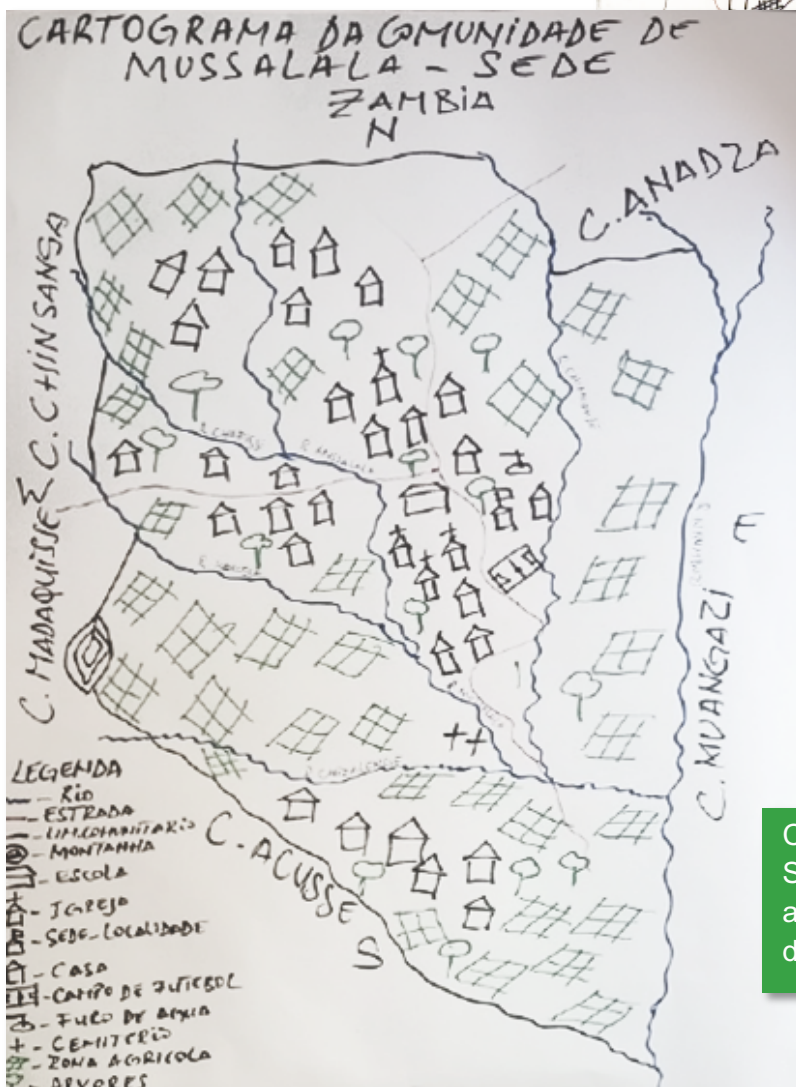 CARTOGRAMA DA COMUNIDADE DE
MUSSALALA - SEDE
ZAMBIA
N
C. ANADZA
C. CHINSANSA
C. MADAQUISSE
E
C. MUANGAZI
C. ACUSSE
S
LEGENDA
- RIO
- ESTRADA
- LIM. COMUNITARIO
- MONTANHA
- ESCOLA
- IGREJA
- SEDE-LOCALIDADE
- CASA
- CAMPO DE FUTEBOL
- FURO DE AGUA
- CEMITERIO
- ZONA AGRICOLA
- ARVORES